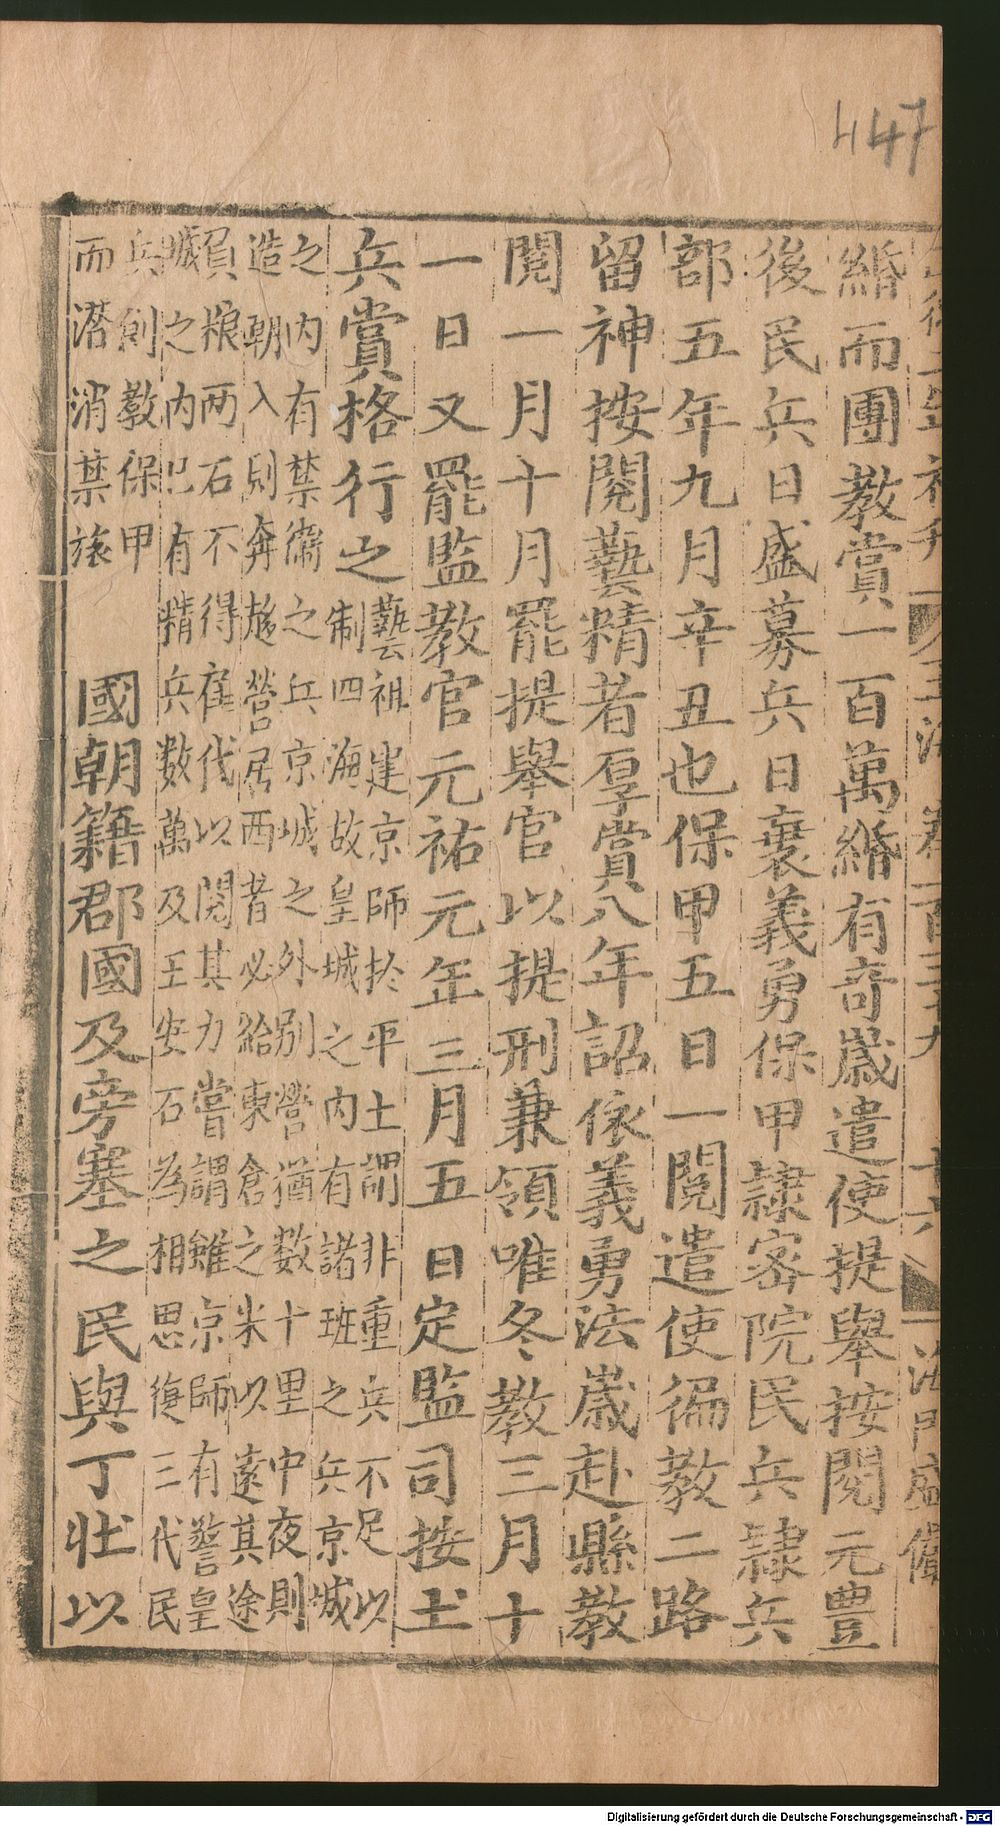 447
玉海 卷一百三十九 十六
緡而團教賞一百萬緡有奇歲遣使提舉按閱元豐
後民兵日盛募兵日衰義勇保甲隷宻院民兵隷兵
部五年九月辛丑也保甲五日一閱遣使徧教二路
留神按閱藝精者厚賞八年詔依義勇法歲赴縣教
閱一月十月罷提舉官以提刑兼領唯冬教三月十
一日又罷監教官元祐元年三月五日定監司按土
兵賞格行之
藝祖建京師於平土謂非重兵不足以
制四海故皇城之内有諸班之兵京城
之内有禁衛之兵京城之外别營猶數十里中夜則
造朝入則奔趍營居西者必給東倉之米以遠其途
負粮两石不得雇代以閱其力嘗謂雖京師有警皇
城之内已有精兵數萬及王安石為相思復三代民
兵創教保甲
而潜消禁旅
國朝籍郡國及旁塞之民與丁壯以
Digitalisierung gefördert durch die Deutsche Forschungsgemeinschaft - DFG